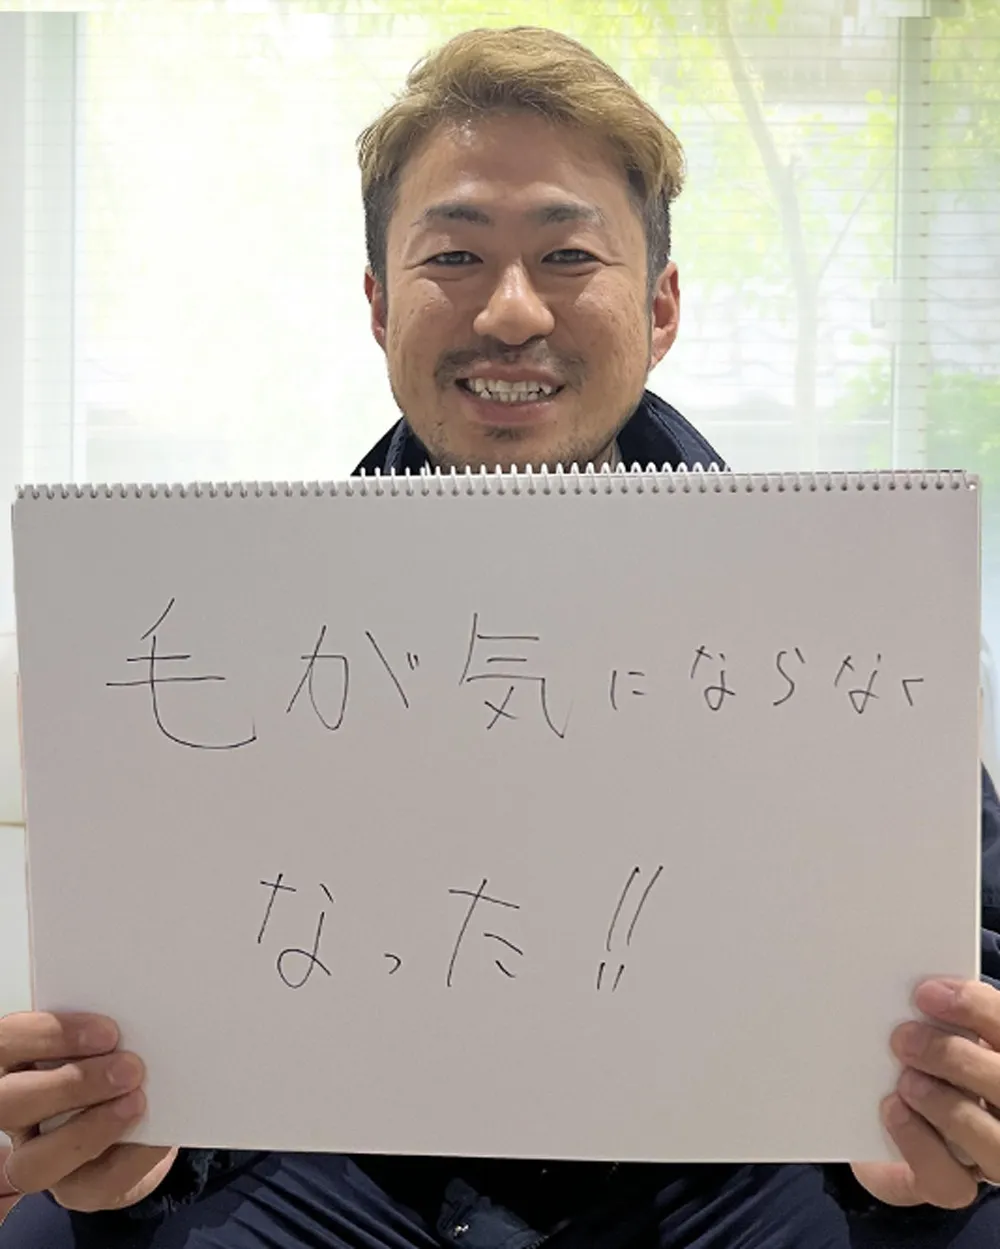 毛が気にならなく
なった!!